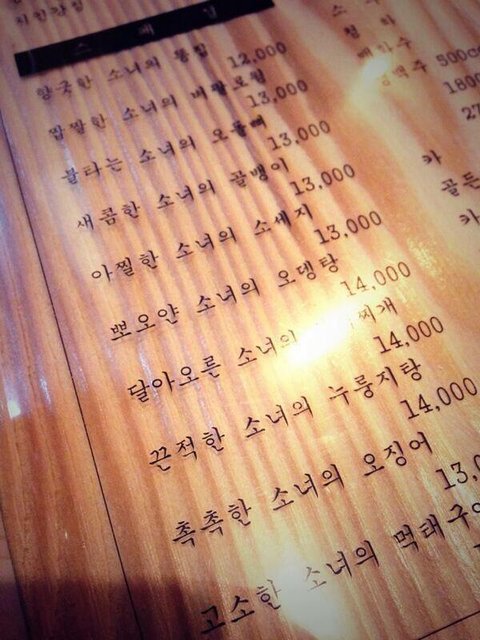 향긋한 소녀의
12,000
짭짤한 소녀의
13,000
불타는 소녀의 오돌뼈
13,000
새콤한 소녀의 골뱅이
13,000
아찔한 소녀의 소세지
13,000
뽀오얀 소녀의 오뎅탕
14,000
달아오른 소녀의 찌개
14,000
끈적한 소녀의 누룽지탕
14,000
촉촉한 소녀의 오징어
고소한 소녀의 먹태구
백화수
생맥주 500cc
카
골든
카